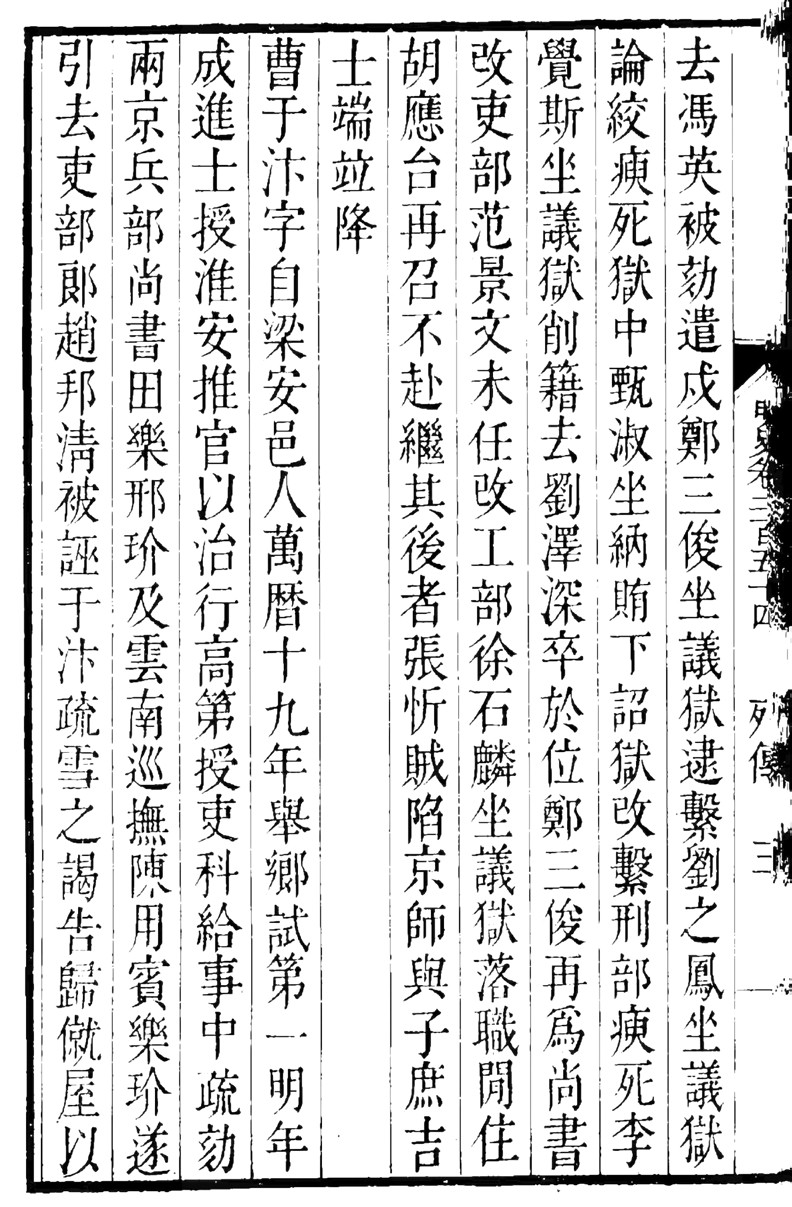 去馮英被劾遣戍鄭三俊坐議獄逮繫劉之鳳坐議獄
論絞瘐死獄中甄淑坐納賄下詔獄改繫刑部瘐死李
覺斯坐議獄削籍去劉澤深卒於位鄭三俊再爲尚書
改吏部范景文未任改工部徐石麟坐議獄落職閒住
胡應台再召不赴繼其後者張忻賊陷京師與子庶吉
士端竝降
曹于汴字自梁安邑人萬曆十九年舉鄉試第一明年
成進士授淮安推官以治行高第授吏科給事中疏劾
兩京兵部尚書田樂邢玠及雲南巡撫陳用賓樂玠遂
引去吏部郞趙邦淸被誣于汴疏雪之謁告歸僦屋以
明史卷二百五十四 列傳 三